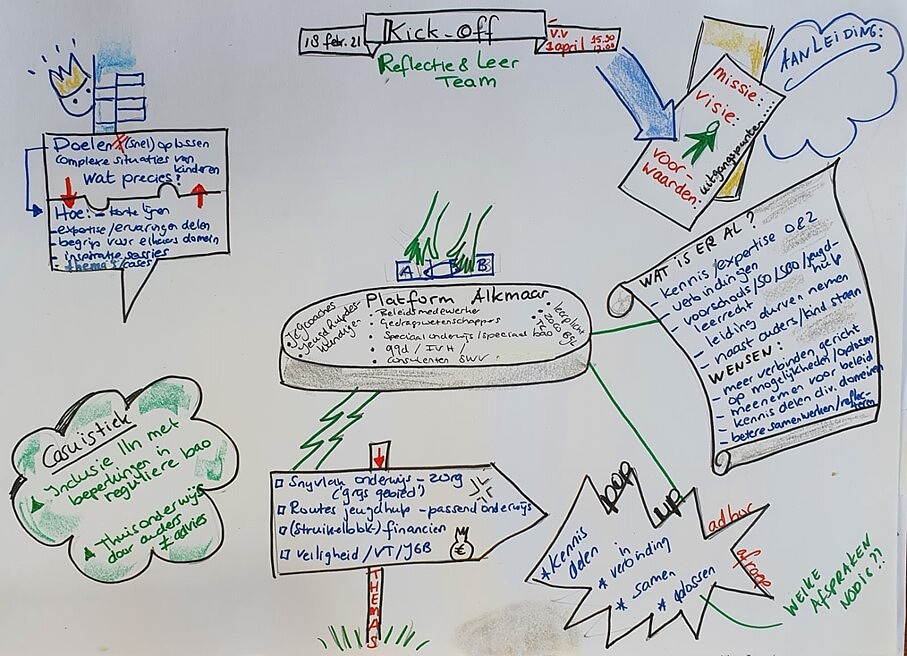 18 febr. 21
Kick-off
v.v
1 april 15.30
17.00
Reflectie & Leer
Team
AANLEIDING:
missie:
visie:
voor-
waarden:
uitgangspunten....
Doelen (snel) oplossen
complexe situaties van
kinderen
Wat precies?
Hoe: - korte lijnen
- expertise/ervaringen delen
- begrip voor elkaars domein
- inspiratie sessies
- thema's/cases
A
B
Platform Alkmaar
• Beleidsmedewerker
• Gedragswetenschapper
• Speciaal onderwijs/speciaal bao
• ggd / IVH /
• consulenten SWV
WAT IS ER AL?
- kennis/expertise O&Z
- verbindingen
- voorschools/SO/SBO/jeugd-
hulp
- leerrecht
- leiding durven nemen
- naast ouders/kind staan
WENSEN:
- meer verbinden gericht
op mogelijkheden/oplossen
- meenemen voor beleid
- kennis delen div. domeinen
- betere samenwerken/reflec-
teren
Casuïstiek
Inclusie lln met
beperkingen in
reguliere bao
Thuisonderwijs
door ouders
≠ advies
Snijvlak onderwijs - zorg
('grijs gebied')
Routes jeugdhulp - passend onderwijs
(Struikelblok-) financiën
Veiligheid/VT/JGB
€
THEMA'S
POP
UP
* kennis
delen
in
* verbinding
* samen
* oplossen
ad hoc
afroep
WELKE
AFSPRAKEN
NODIG??